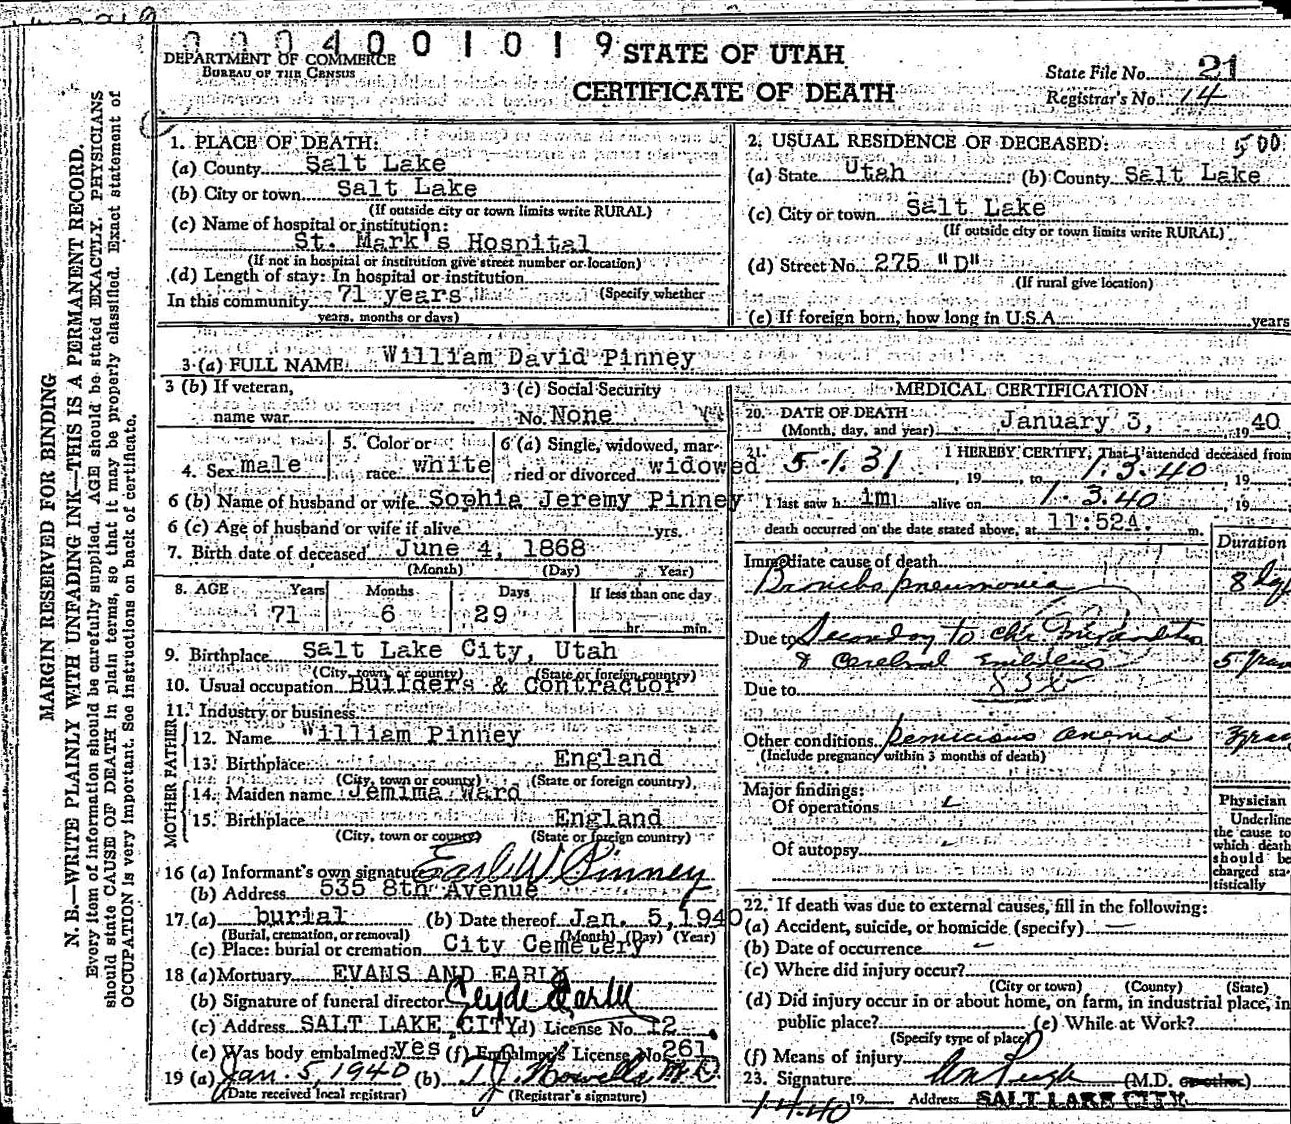 0004001019 STATE OF UTAH
DEPARTMENT OF COMMERCE
BUREAU OF THE CENSUS
CERTIFICATE OF DEATH
State File No. 21
Registrar's No. 14
MARGIN RESERVED FOR BINDING
N. B.—WRITE PLAINLY WITH UNFADING INK—THIS IS A PERMANENT RECORD.
Every item of information should be carefully supplied. AGE should be stated EXACTLY. PHYSICIANS
should state CAUSE OF DEATH in plain terms, so that it may be properly classified. Exact statement of
OCCUPATION is very important. See instructions on back of certificate.
1. PLACE OF DEATH:
(a) County Salt Lake
(b) City or town Salt Lake
(If outside city or town limits write RURAL)
(c) Name of hospital or institution:
St. Mark's Hospital
(If not in hospital or institution give street number or location)
(d) Length of stay: In hospital or institution
(Specify whether
In this community 71 years
years, months or days)
2. USUAL RESIDENCE OF DECEASED: 500
(a) State Utah (b) County Salt Lake
(c) City or town Salt Lake
(If outside city or town limits write RURAL)
(d) Street No. 275 "D"
(If rural give location)
(e) If foreign born, how long in U.S.A. years
3 (a) FULL NAME William David Pinney
3 (b) If veteran,
name war
3 (c) Social Security
No. None
4. Sex male
5. Color or
race white
6 (a) Single, widowed, mar-
ried or divorced widowed
6 (b) Name of husband or wife Sophia Jeremy Pinney
6 (c) Age of husband or wife if alive yrs.
7. Birth date of deceased June 4, 1868
(Month) (Day) Year)
8. AGE Years Months Days If less than one day
71 6 29 hr. min.
9. Birthplace Salt Lake City, Utah
(City, town or county) (State or foreign country)
10. Usual occupation Builders & Contractor
11. Industry or business
FATHER
12. Name William Pinney
13. Birthplace England
(City, town or county) (State or foreign country)
MOTHER
14. Maiden name Jemima Ward
15. Birthplace England
(City, town or county) (State or foreign country)
16 (a) Informant's own signature Earl W Pinney
(b) Address 535 8th Avenue
17. (a) burial (b) Date thereof Jan. 5, 1940
(Burial, cremation, or removal) (Month) (Day) (Year)
(c) Place: burial or cremation City Cemetery
18 (a) Mortuary EVANS AND EARLY
(b) Signature of funeral director Clyde
(c) Address SALT LAKE CITY (d) License No. 12
(e) Was body embalmed? yes (f) Embalmer's License No. 261
19 (a) Jan. 5, 1940 (b) T.J. Howells M.D.
(Date received local registrar) (Registrar's signature)
MEDICAL CERTIFICATION
20. DATE OF DEATH
(Month, day, and year) January 3, 1940
21. I HEREBY CERTIFY, That I attended deceased from
5.1.31, 19 , to 1.3.40, 19
I last saw h im alive on 1.3.40, 19
death occurred on the date stated above, at 11:52A. m.
Duration
Immediate cause of death
Broncho pneumonia 8
Due to Secondary to
& Cerebral Embolus 5
Due to
Other conditions pernicious anemia
(Include pregnancy within 3 months of death)
Major findings:
Of operations
Of autopsy
Physician
Underline
the cause to
which death
should be
charged sta-
tistically
22. If death was due to external causes, fill in the following:
(a) Accident, suicide, or homicide (specify) —
(b) Date of occurrence
(c) Where did injury occur?
(City or town) (County) (State)
(d) Did injury occur in or about home, on farm, in industrial place, in
public place? (e) While at Work?
(Specify type of place)
(f) Means of injury
23. Signature (M.D. or other)
1.4.40 19 Address SALT LAKE CITY